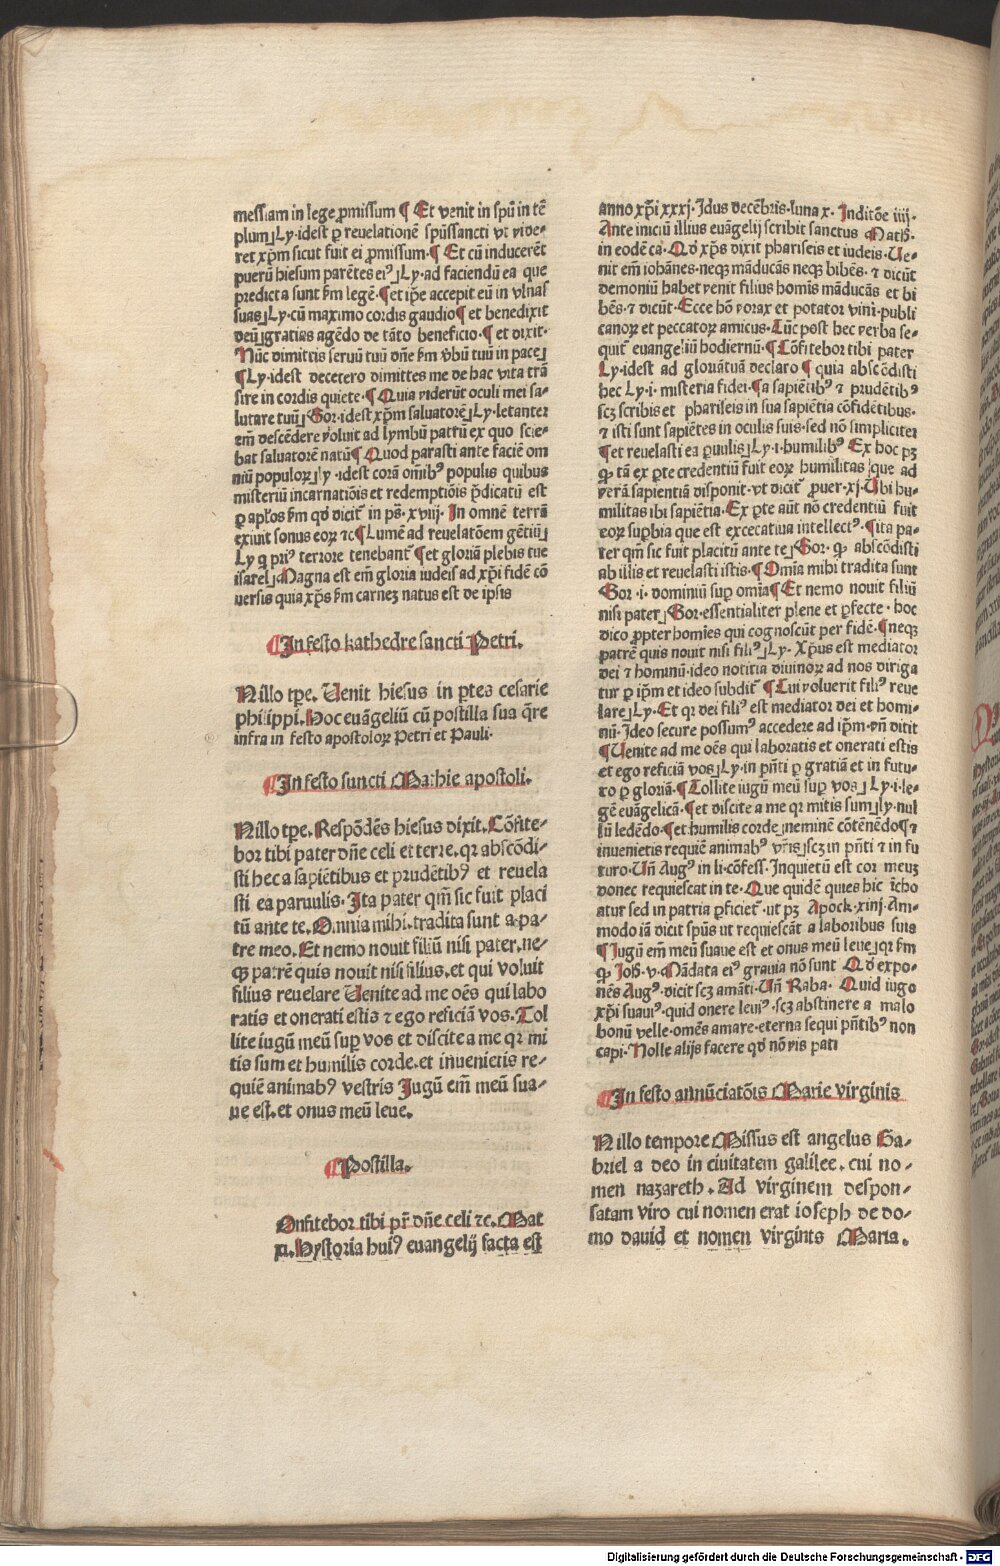 messiam in lege ꝓmissum ¶ Et venit in spũ in tẽ
plum⸥Ly·idest ꝑ reuelationẽ spũssancti vt vide⸗
ret xp̃m sicut fuit ei ꝓmissum·¶ Et cũ inducerẽt
puerũ hiesum parẽtes eiꝰ⸥Ly·ad faciendũ ea que
predicta sunt ẜm legẽ·¶et ip̃e accepit eũ in vlnas
suas⸥Ly·cũ maximo cordis gaudio¶ et benedixit
deũ⸥gratias agẽdo de tãto beneficio·¶ et dixit·
Nũc dimittis seruũ tuũ dñe ẜm v̾bũ tuũ in pace⸥
¶Ly·idest decetero dimittes me de hac vita trã
sire in cordis quiete·¶Quia viderũt oculi mei sa⸗
lutare tuũ⸥Gor·idest xp̃m saluatorẽ⸥Ly·letanter
em̃ descẽdere voluit ad lymbũ patrũ ex quo scie⸗
bat saluatorẽ natũ¶ Quod parasti ante faciẽ om
niũ populoꝝ⸥ly·idest corã om̃ibꝰ populis quibus
misteriũ incarnatiõis et redemptiõis p̃dicatũ est
ꝑ ap̃los ẜm qđ dicit̃ in ps̃·xviij·In omnẽ terrã
exiuit sonus eoꝝ ⁊c¶Lumẽ ad reuelatõem gẽtiũ⸥
Ly q priꝰ terrore tenebant̃¶et gloriã plebis tue
israel⸥Magna est em̃ gloria iudeis ad xp̃i fidẽ cõ
uersis quia xp̃s ẜm carneꝫ natus est de ipsis
¶In festo kathedre sancti Petri.
N illo tꝑe. Uenit hiesus in ꝑtes cesarie
philippi.Hoc euãgeliũ cũ postilla sua q̃re
infra in festo apostoloꝝ Petri et Pauli·
¶In festo sancti Mathie apostoli.
N illo tꝑe.Respõdẽs hiesus dixit.Cõfite⸗
bor tibi pater dñe celi et terre.qꝛ abscõdi⸗
sti hec a sapiẽtibus et prudẽtibꝰ et reuela
sti ea paruulis.Ita pater qm̃ sic fuit placi
tũ ante te.Omnia mihi tradita sunt a pa⸗
tre meo.Et nemo nouit filiũ nisi pater.ne⸗
qꝫ patrẽ quis nouit nisi filius.et qui voluit
filius reuelare Uenite ad me oẽs qui labo
ratis et onerati estis ⁊ ego reficiã vos.Tol
lite iugũ meũ suꝑ vos et discite a me qꝛ mi
tis sum et humilis corde.et inuenietis re⸗
quiẽ animabꝰ vestris Jugũ em̃ meũ sua⸗
ue est.et onus meũ leue.
¶Postilla.
Onfitebor tibi pr̃ dñe celi ⁊c.Mat
xi.Hystoria huiꝰ euangelij facta est
anno xp̃i xxxj·Idus decẽbris·luna x· Inditõe iiij·
Ante iniciũ illius euãgelij scribit sanctus Math̃·
in eodẽ ca·Qđ xp̃s dixit phariseis et iudeis·Ue⸗
nit em̃ iohãnes·neqꝫ mãducãs neqꝫ bibẽs·⁊ dicũt
demoniũ habet venit filius homĩs mãducãs et bi
bẽs·⁊ dicũt·Ecce hõ vorax et potator vini·publi
canoꝝ et peccatoꝝ amicus·Tũc post hec verba se⸗
quit̃ euangeliũ hodiernũ·¶Cõfitebor tibi pater
Ly·idest ad gloriãtuã declaro ¶ quia abscõdisti
hec Ly·i·misteria fidei·¶a sapiẽtibꝰ ⁊ prudẽtibꝰ
scꝫ scribis et phariseis in sua sapiẽtia cõfidẽtibus·
⁊ isti sunt sapiẽtes in oculis suis·sed nõ simpliciter
¶et reuelasti ea ꝑuulis⸥Ly·i·humilibꝰ Ex hoc pꝫ
ꝙ tã ex ꝑte credentiũ fuit eoꝝ humilitas que ad
verã sapientiã disponit·vt dicit̃ ꝓuer·xj·Ubi hu⸗
militas ibi sapiẽtia·Ex ꝑte aũt nõ credentiũ fuit
eoꝝ suꝑbia que est excecatiua intellectꝰ·¶ita pa⸗
ter qm̃ sic fuit placitũ ante te⸥Gor· ꝙ abscõdisti
ab illis et reuelasti istis·¶Om̃ia mihi tradita sunt
Gor·i·dominiũ suꝑ om̃ia¶Et nemo nouit filiũ
nisi pater⸥Gor·essentialiter plene et ꝑfecte·hoc
dico ꝓpter homĩes qui cognoscũt per fidẽ·¶neqꝫ
patrẽ quis nouit nisi filiꝰ⸥Ly·Xp̃us est mediator
dei ⁊ hominũ·ideo notitia diuinoꝝ ad nos diriga
tur ꝑ ip̃m et ideo subdit̃ ¶Cui voluerit filiꝰ reue
lare⸥Ly·Et qꝛ dei filiꝰ est mediator dei et homi⸗
nũ·Ideo secure possumꝰ accedere ad ip̃m·vñ dicit
¶Uenite ad me oẽs qui laboratis et onerati estis
et ego reficiã vos⸥Ly·in pñti ꝑ gratiã et in futu⸗
ro ꝑ gloriã·¶Tollite iugũ meũ suꝑ vos⸥Ly·i·le⸗
gẽ euãgelicã·¶et discite a me qꝛ mitis sum⸥ly·nul
lũ ledẽdo·¶et humilis corde⸥neminẽ cõtẽnẽdo¶⁊
inuenietis requiẽ animabꝰ vr̃is⸥scꝫ in pñti ⁊ in fu
turo·Uñ Augꝰ in li·cõfess·Inquietũ est cor meuꝫ
donec requiescat in te·Que quidẽ quies hic ĩcho
atur sed in patria ꝑficiet̃·ut pꝫ Apock·xiiij·Am⸗
modo iã dicit spũs ut requiescãt a laboribus suis
¶Jugũ em̃ meũ suaue est et onus meũ leue⸥qꝛ ẜm
ꝙ Joh̃·v·Mãdata eiꝰ grauia nõ sunt Qđ expo⸗
nẽs Augꝰ·dicit scꝫ amãti·Uñ Raba·Quid iugo
xp̃i suauiꝰ·quid onere leuiꝰ·scꝫ abstinere a malo
bonũ velle·omẽs amare·eterna sequi pñtibꝰ non
capi·Nolle alijs facere qđ nõ vis pati
¶In festo annũciatõis Marie virginis
N illo tempore Missus est angelus Ga⸗
briel a deo in ciuitatem galilee.cui no⸗
men nazareth.Ad virginem despon⸗
satam viro cui nomen erat ioseph de do⸗
mo dauid et nomen virginis Maria.
Digitalisierung gefördert durch die Deutsche Forschungsgemeinschaft - DFG